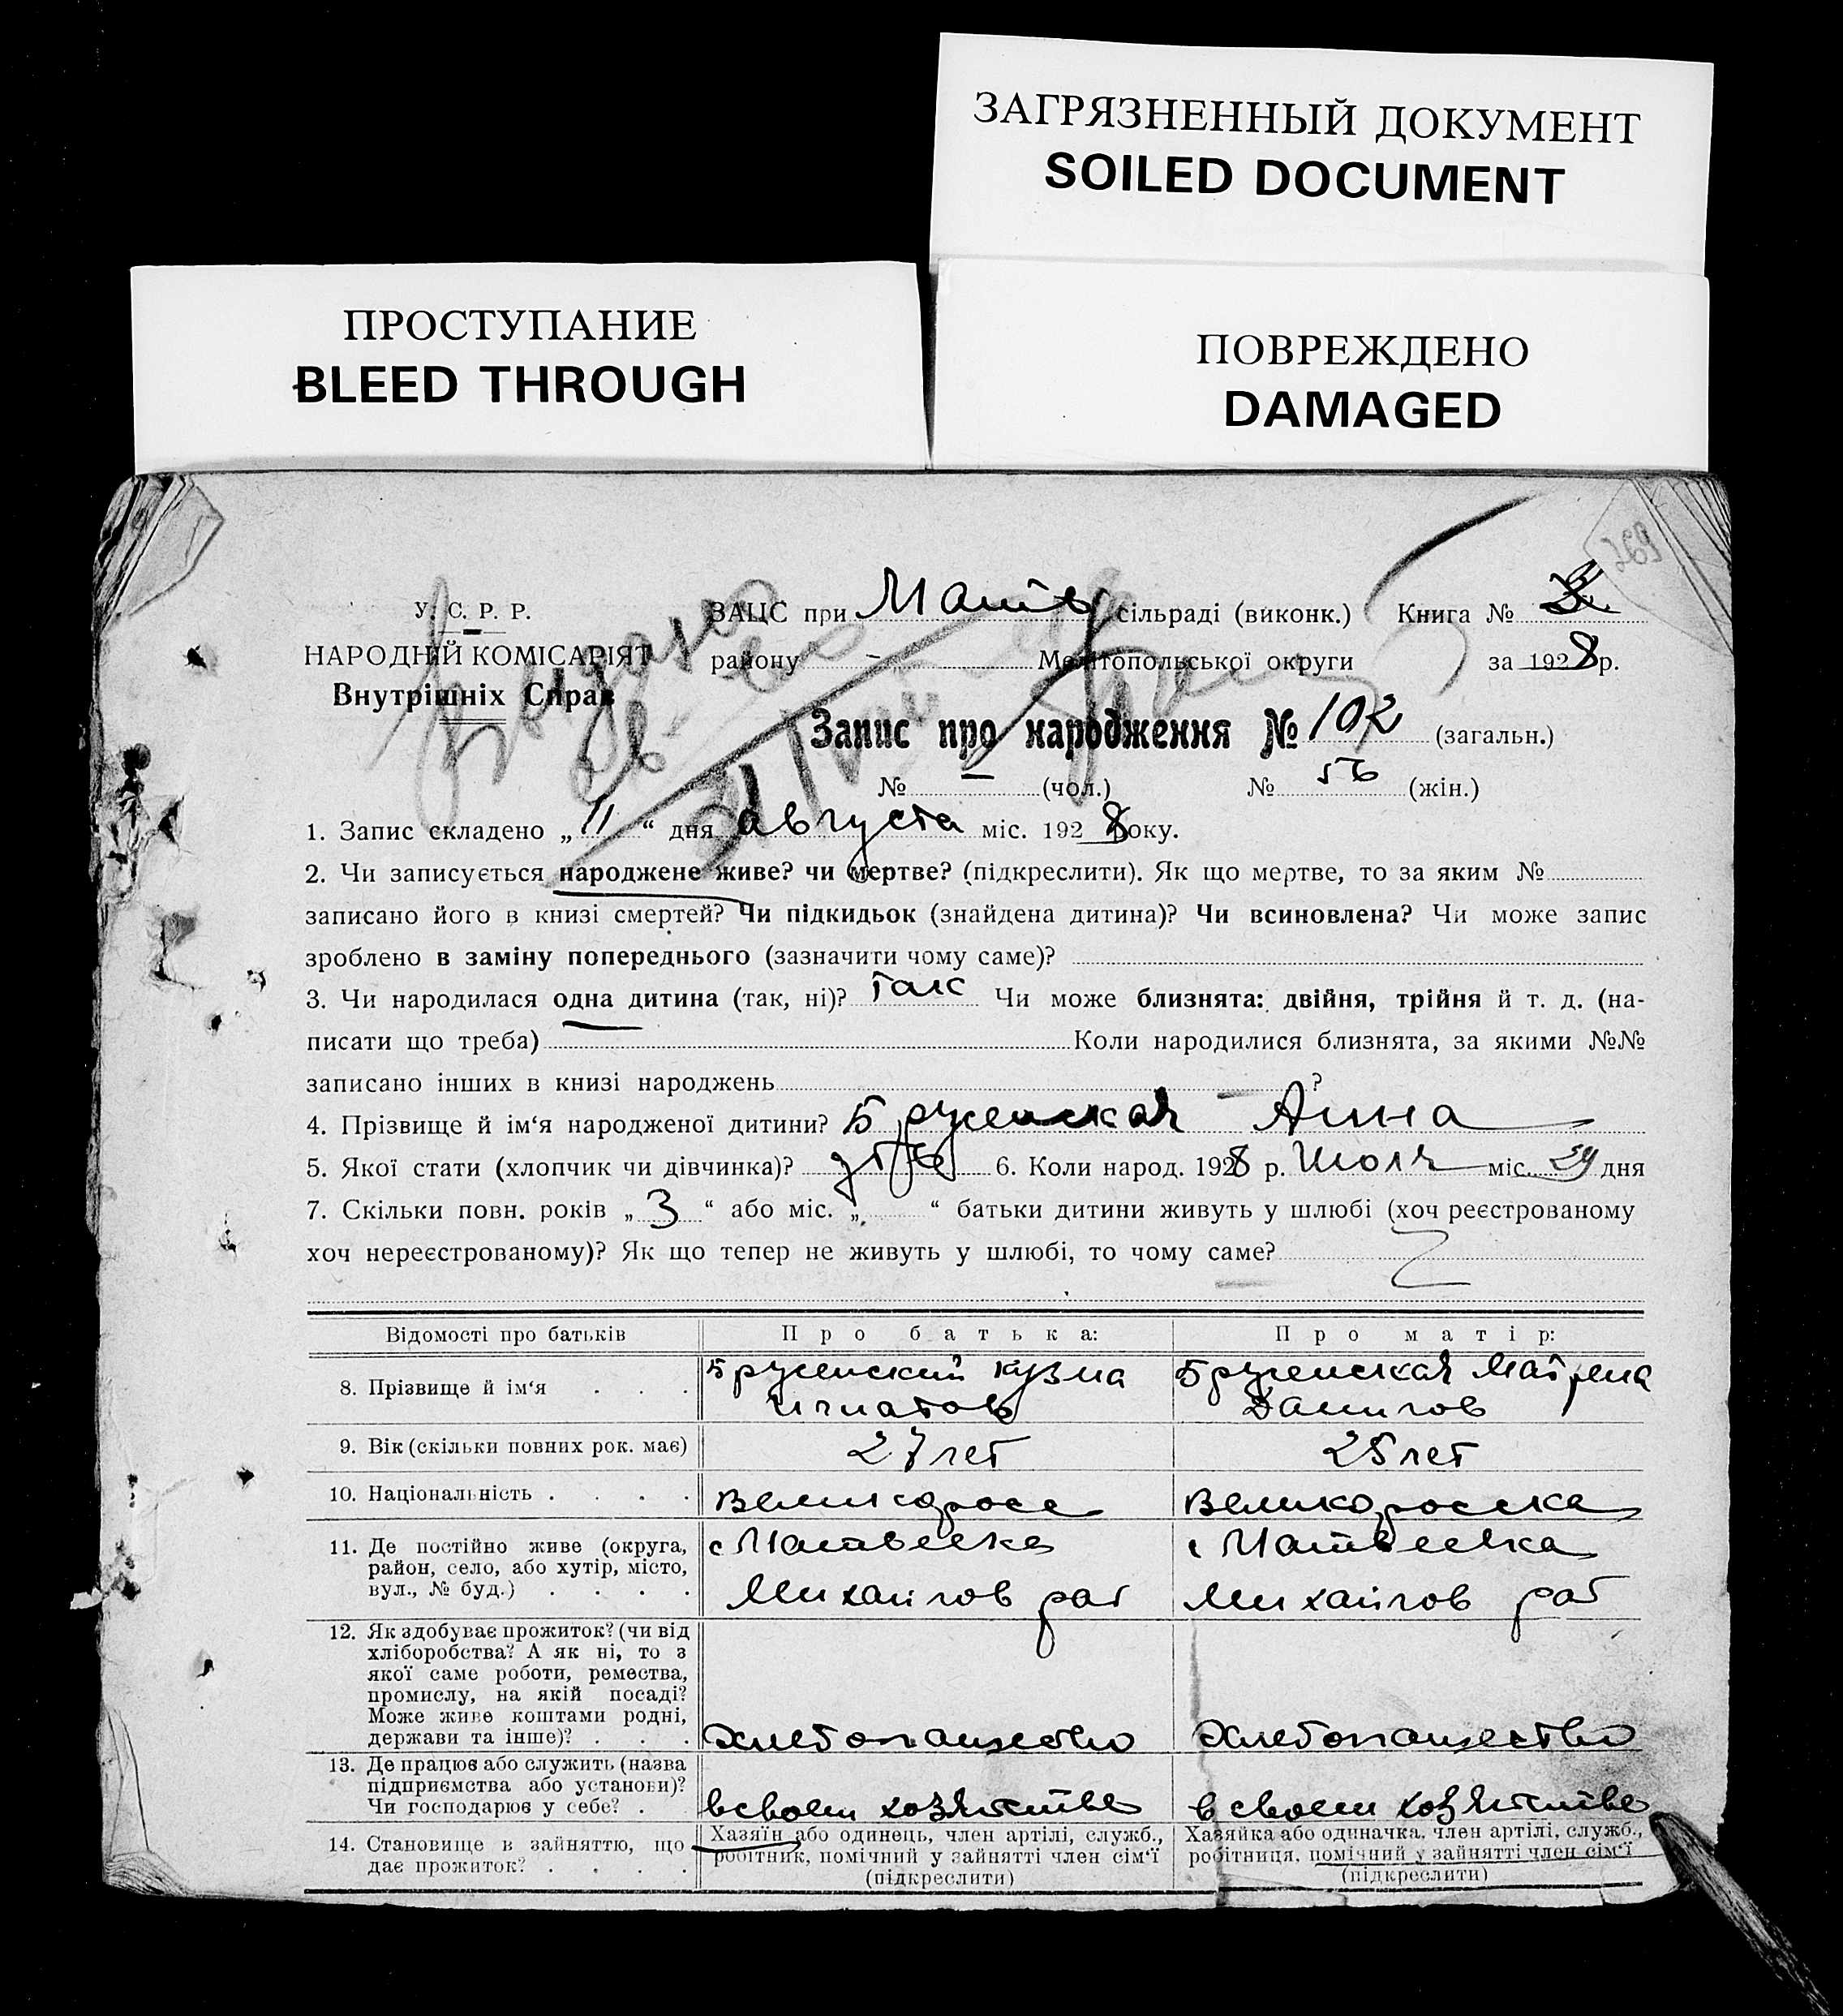 ЗАГРЯЗНЕННЫЙ ДОКУМЕНТ
SOILED DOCUMENT
ПРОСТУПАНИЕ
BLEED THROUGH
ПОВРЕЖДЕНО
DAMAGED
У. С. Р. Р.
НАРОДНІЙ КОМІСАРІЯТ
Внутрішніх Справ
ЗАЦС при Матв сільраді (виконк.) Книга №
району - Мелітопольської округи за 1928 р.
Запис про народження № 102 (загальн.)
№ — (чол.) № 56 (жін.)
1. Запис складено „11“ дня августа міс. 1928 року.
2. Чи записується народжене живе? чи мертве? (підкреслити). Як що мертве, то за яким №
записано його в книзі смертей? Чи підкидьок (знайдена дитина)? Чи всиновлена? Чи може запис
зроблено в заміну попереднього (зазначити чому саме)?
3. Чи народилася одна дитина (так, ні)? так Чи може близнята: двійня, трійня й т. д. (на-
писати що треба) Коли народилися близнята, за якими №№
записано інших в книзі народжень ?
4. Прізвище й ім‘я народженої дитини? Анна
5. Якої стати (хлопчик чи дівчинка)? 6. Коли народ. 1928 р. Июля міс. 29 дня
7. Скільки повн. років „3“ або міс. „ “ батьки дитини живуть у шлюбі (хоч реєстрованому
хоч нереєстрованому)? Як що тепер не живуть у шлюбі, то чому саме?
Відомості про батьків Про батька: Про матір:
8. Прізвище й ім‘я . . . Кузма Игнатов Матрена Данилов
9. Вік (скільки повних рок. має) 27 лет 25 лет
10. Національність . . . . Великоросс Великоросска
11. Де постійно живе (округа,
район, село, або хутір, місто,
вул., № буд.) . . . .
с Матвеевка
Михайлов рай
с Матвеевка
Михайлов рай
12. Як здобуває прожиток? (чи від
хліборобства? А як ні, то з
якої саме роботи, ремества,
промислу, на якій посаді?
Може живе коштами родні,
держави та інше)? . . .
хлебопашество хлебопашество
13. Де працює або служить (назва
підприємства або установи)?
Чи господарює у себе? .
в своем хозяйстве в своем хозяйстве
14. Становище в зайняттю, що
дає прожиток? . . . .
Хазяїн або одинець, член артілі, служб.,
робітник, помічний у зайнятті член сім‘ї
(підкреслити)
Хазяйка або одиначка, член артілі, служб.,
робітниця, помічний у зайнятті член сім‘ї
(підкреслити)